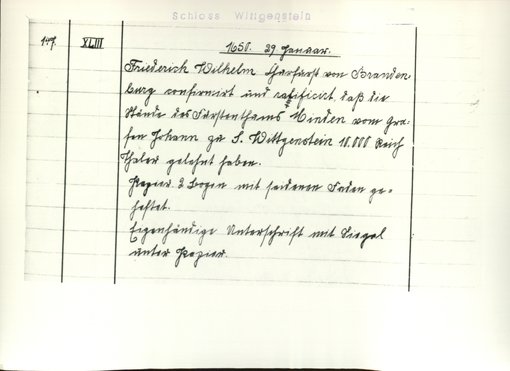 Schloss Wittgenstein
147. XLIII
1650. 29 Januar.
Friederich Wilhelm Churfürst von Branden-
burg confirmirt und ratificirt, daß die
Stände des Fürstenthums Minden vom Gra-
fen Johann zu S. Wittgenstein 10.000 Reich
Thaler gelehnt haben.
Papier. 2 Bogen mit seidenen Faden ge-
heftet.
Eigenhändige Unterschrift mit Siegel
unter Papier.